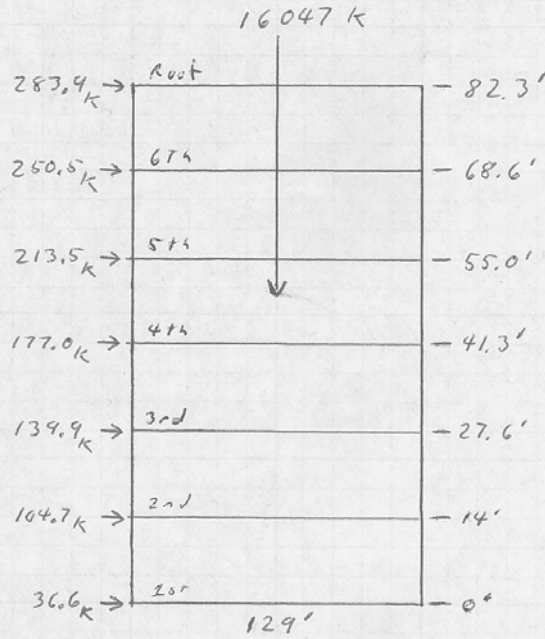 16047 K
283.9K Roof 82.3'
250.5K 6Th 68.6'
213.5K 5th 55.0'
177.0K 4th 41.3'
139.9K 3rd 27.6'
104.7K 2nd 14'
36.6K 1st 0'
129'